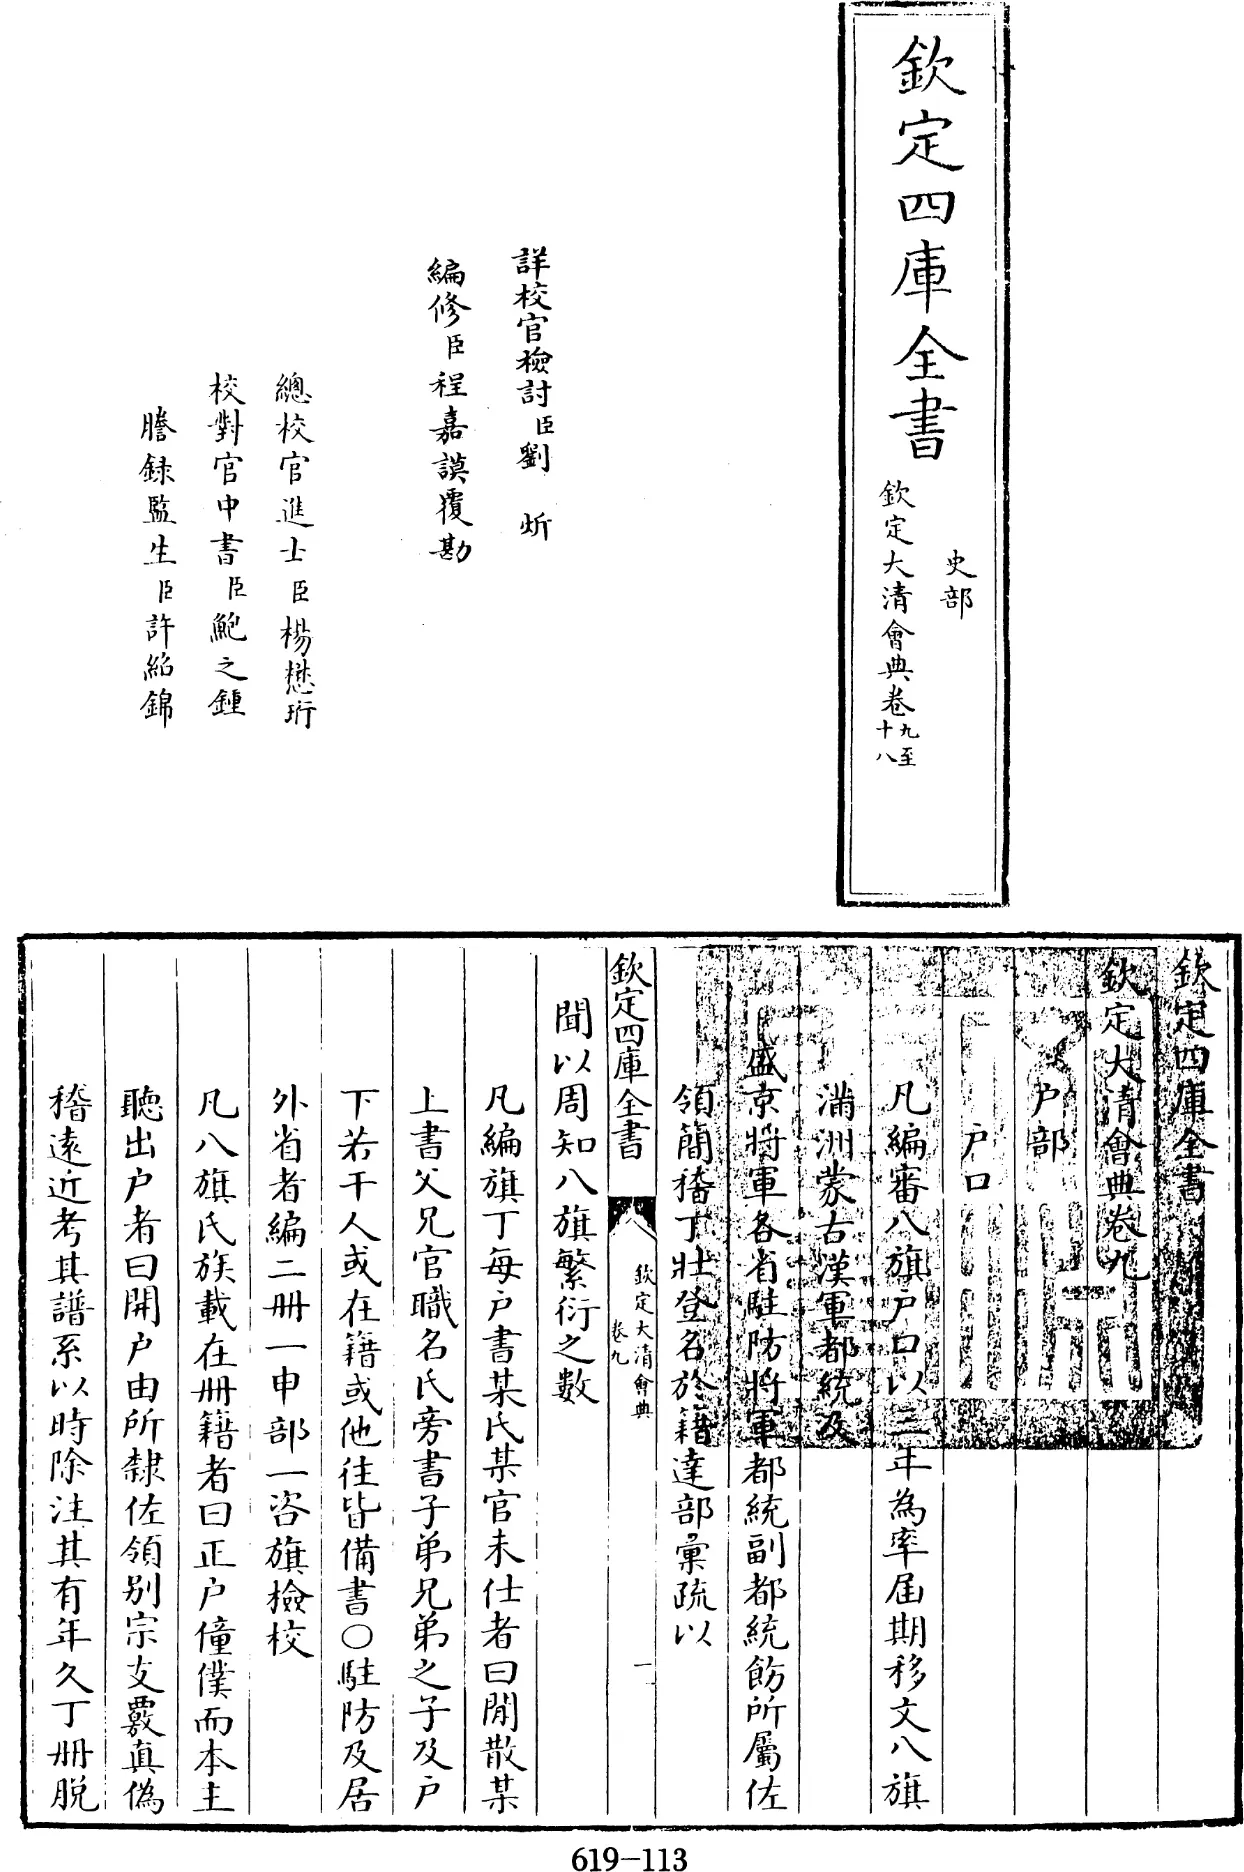 欽定四庫全書
史部
欽定大清會典卷九至十八
詳校官檢討臣劉炘
編修臣程嘉謨覆勘
總校官進士臣楊懋珩
校對官中書臣鮑之鍾
謄録監生臣許紹錦
欽定四庫全書
欽定大清會典卷九
户部
户口
凡編審八旗户口以三年為率届期移文八旗
滿洲蒙古漢軍都統及
盛京將軍各省駐防將軍都統副都統飭所屬佐
領簡稽丁壯登名於籍達部彙疏以
欽定四庫全書
欽定大清會典
卷九
一
聞以周知八旗繁衍之數
凡編旗丁每户書某氏某官未仕者曰閒散某
上書父兄官職名氏旁書子弟兄弟之子及户
下若干人或在籍或他往皆備書○駐防及居
外省者編二冊一申部一咨旗檢校
凡八旗氏族載在冊籍者曰正户僮僕而本主
聽出户者曰開户由所隸佐領别宗支覈真偽
稽逺近考其譜系以時除注其有年久丁冊脱
619-113